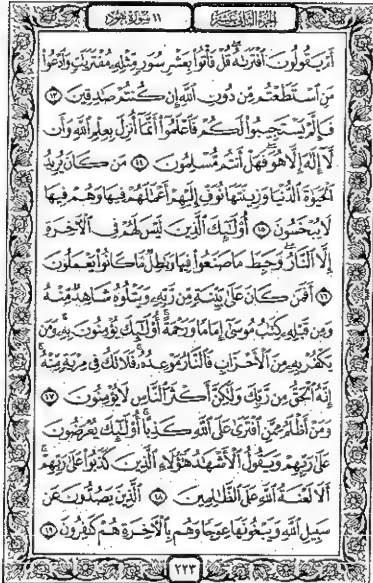 الجزء الثاني عشر
١١ سورة هود
أَمْ يَقُولُونَ افْتَرَىٰهُ قُلْ فَأْتُوا بِعَشْرِ سُوَرٍ مِّثْلِهِ مُفْتَرَيَاتٍ وَادْعُوا
مَنِ اسْتَطَعْتُم مِّن دُونِ اللَّهِ إِن كُنتُمْ صَادِقِينَ ١٣
فَإِلَّمْ يَسْتَجِيبُوا لَكُمْ فَاعْلَمُوا أَنَّمَا أُنزِلَ بِعِلْمِ اللَّهِ وَأَن
لَّا إِلَٰهَ إِلَّا هُوَ فَهَلْ أَنتُم مُّسْلِمُونَ ١٤ مَن كَانَ يُرِيدُ
الْحَيَوٰةَ الدُّنْيَا وَزِينَتَهَا نُوَفِّ إِلَيْهِمْ أَعْمَٰلَهُمْ فِيهَا وَهُمْ فِيهَا
لَا يُبْخَسُونَ ١٥ أُولَٰئِكَ الَّذِينَ لَيْسَ لَهُمْ فِي الْآخِرَةِ
إِلَّا النَّارُ وَحَبِطَ مَا صَنَعُوا فِيهَا وَبَٰطِلٌ مَّا كَانُوا يَعْمَلُونَ
١٦ أَفَمَن كَانَ عَلَىٰ بَيِّنَةٍ مِّن رَّبِّهِ وَيَتْلُوهُ شَاهِدٌ مِّنْهُ
وَمِن قَبْلِهِ كِتَٰبُ مُوسَىٰ إِمَامًا وَرَحْمَةً أُولَٰئِكَ يُؤْمِنُونَ بِهِ وَمَن
يَكْفُرْ بِهِ مِنَ الْأَحْزَابِ فَالنَّارُ مَوْعِدُهُ فَلَا تَكُ فِي مِرْيَةٍ مِّنْهُ
إِنَّهُ الْحَقُّ مِن رَّبِّكَ وَلَٰكِنَّ أَكْثَرَ النَّاسِ لَا يُؤْمِنُونَ ١٧
وَمَنْ أَظْلَمُ مِمَّنِ افْتَرَىٰ عَلَى اللَّهِ كَذِبًا أُولَٰئِكَ يُعْرَضُونَ
عَلَىٰ رَبِّهِمْ وَيَقُولُ الْأَشْهَٰدُ هَٰؤُلَاءِ الَّذِينَ كَذَبُوا عَلَىٰ رَبِّهِمْ
أَلَا لَعْنَةُ اللَّهِ عَلَى الظَّٰلِمِينَ ١٨ الَّذِينَ يَصُدُّونَ عَن
سَبِيلِ اللَّهِ وَيَبْغُونَهَا عِوَجًا وَهُم بِالْآخِرَةِ هُمْ كَٰفِرُونَ ١٩
٢٢٣